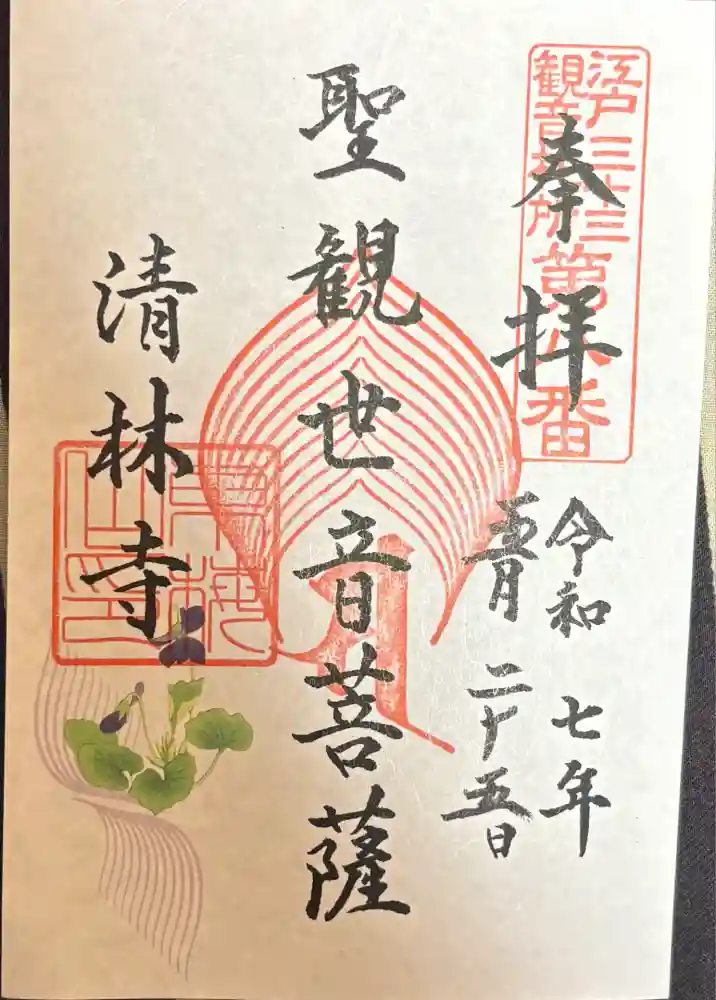 江戸三十三
観音札所
第八番
奉拝
令和七年
五月二十五日
聖観世音菩薩
清林寺